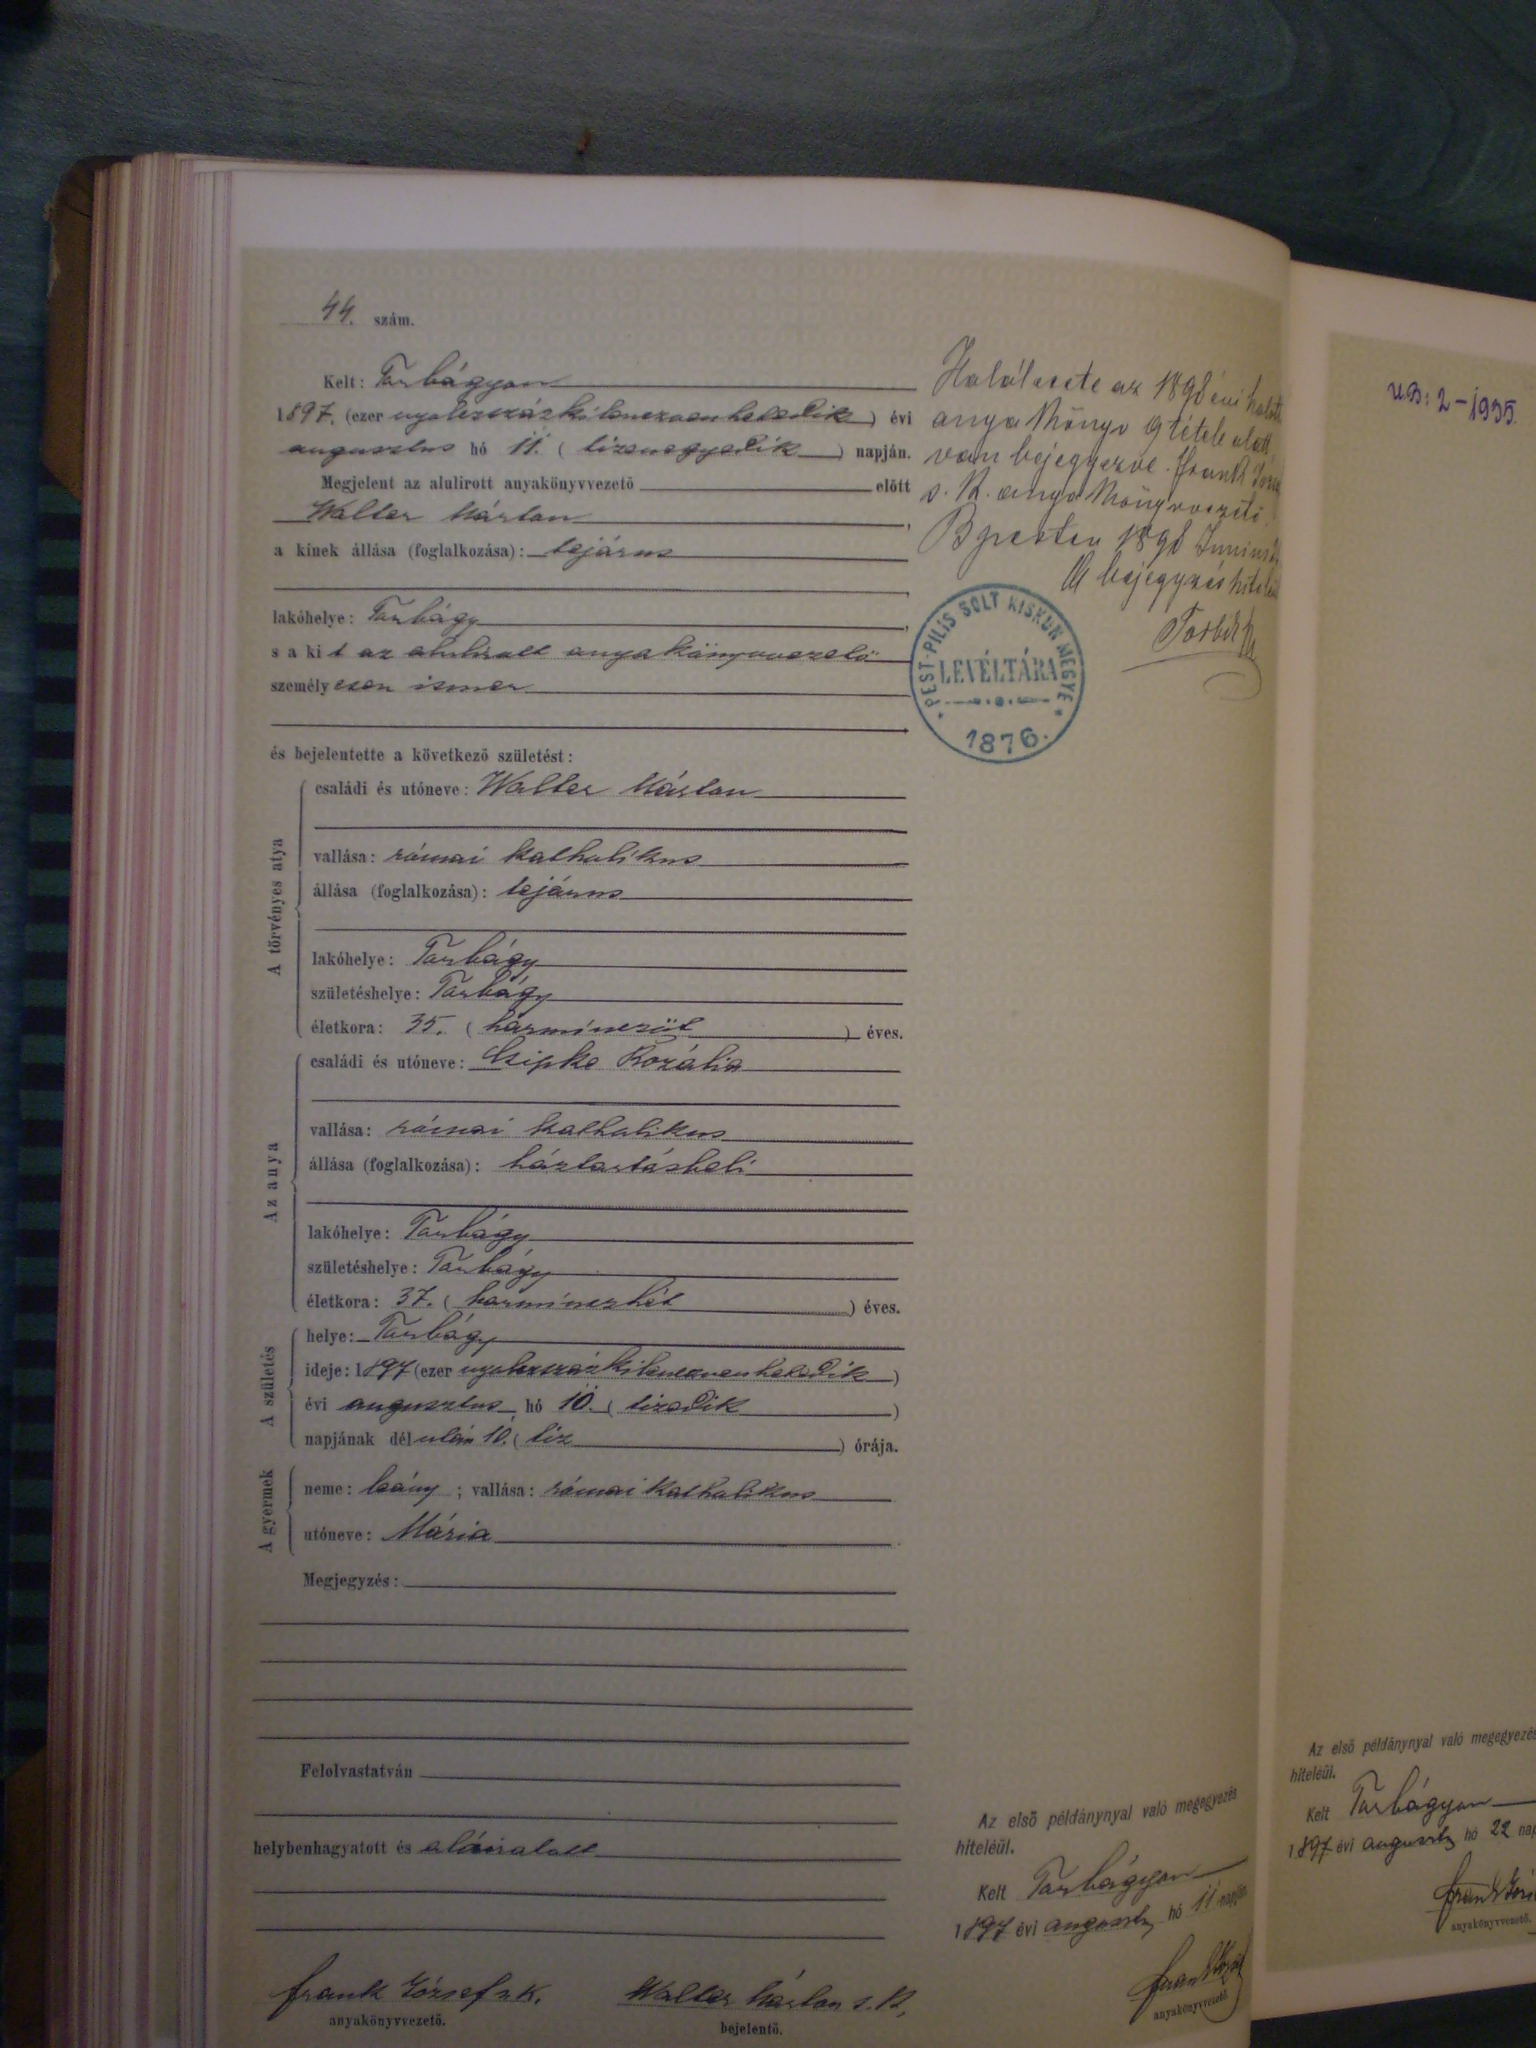 44. szám.
Kelt: Torbágyon
1897. (ezer nyolczszázkilenczvenhetedik) évi
augusztus hó 11. (tizenegyedik) napján.
Megjelent az alulirott anyakönyvvezető előtt
Walter Márton,
a kinek állása (foglalkozása): tejárus
lakóhelye: Torbágy,
s a kit az alulirott anyakönyvvezető
személyesen ismer
és bejelentette a következő születést:
A törvényes atya
családi és utóneve: Walter Márton
vallása: római katholikus
állása (foglalkozása): tejárus
lakóhelye: Torbágy
születéshelye: Torbágy
életkora: 35. (harminczöt) éves.
Az anya
családi és utóneve: Czipke Rozália
vallása: római katholikus
állása (foglalkozása): háztartásbeli
lakóhelye: Torbágy
születéshelye: Torbágy
életkora: 37. (harminczhét) éves.
A születés
helye: Torbágy
ideje: 1897 (ezer nyolczszázkilenczvenhetedik)
évi augusztus hó 10. (tizedik)
napjának délután 10. (tíz) órája.
A gyermek
neme: leány; vallása: római katholikus
utóneve: Mária
Megjegyzés:
Felolvastatván
helybenhagyatott és aláiratott
Frank József s. k.
anyakönyvvezető.
Walter Márton s. k.
bejelentő.
Halálesete az 1898 évi halotti
anyakönyv 9 tétele alatt
van bejegyezve. Frank József
s. k. anyakönyvvezető.
Bpesten 1898 Junius
A bejegyzés hiteléül
PEST-PILIS SOLT KISKUN MEGYE
LEVÉLTÁRA
1876.
Az első példánynyal való megegyezés
hiteléül.
Kelt Torbágyon
1897 évi auguszt. hó 11 napján
Frank József
anyakönyvvezető
U.B: 2-1935.
Az első példánynyal való megegyezés
hiteléül.
Kelt Torbágyon
1897 évi auguszt. hó 22 nap
Frank Józs
anyakönyvvezető.